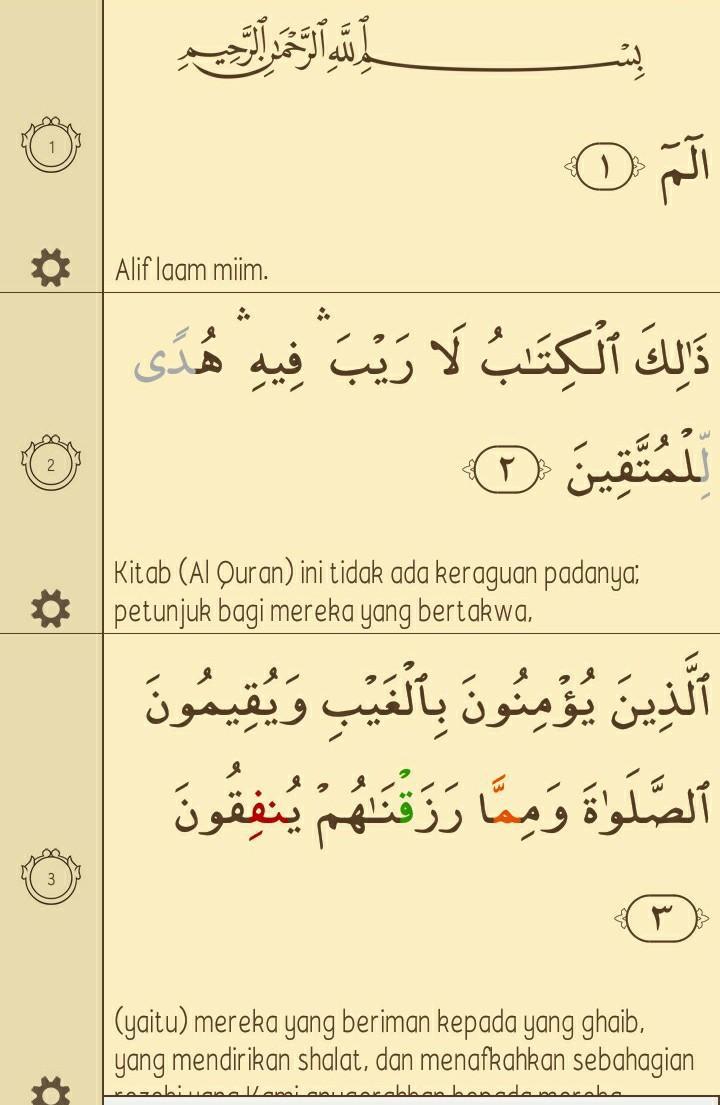 بِسْمِ ٱللَّهِ ٱلرَّحْمَٰنِ ٱلرَّحِيمِ
1
الٓمٓ ١
Alif laam miim.
ذَٰلِكَ ٱلْكِتَـٰبُ لَا رَيْبَ ۛ فِيهِ ۛ هُدًى
2
لِّلْمُتَّقِينَ ٢
Kitab (Al Quran) ini tidak ada keraguan padanya;
petunjuk bagi mereka yang bertakwa,
ٱلَّذِينَ يُؤْمِنُونَ بِٱلْغَيْبِ وَيُقِيمُونَ
ٱلصَّلَوٰةَ وَمِمَّا رَزَقْنَـٰهُمْ يُنفِقُونَ
3
٣
(yaitu) mereka yang beriman kepada yang ghaib,
yang mendirikan shalat, dan menafkahkan sebahagian